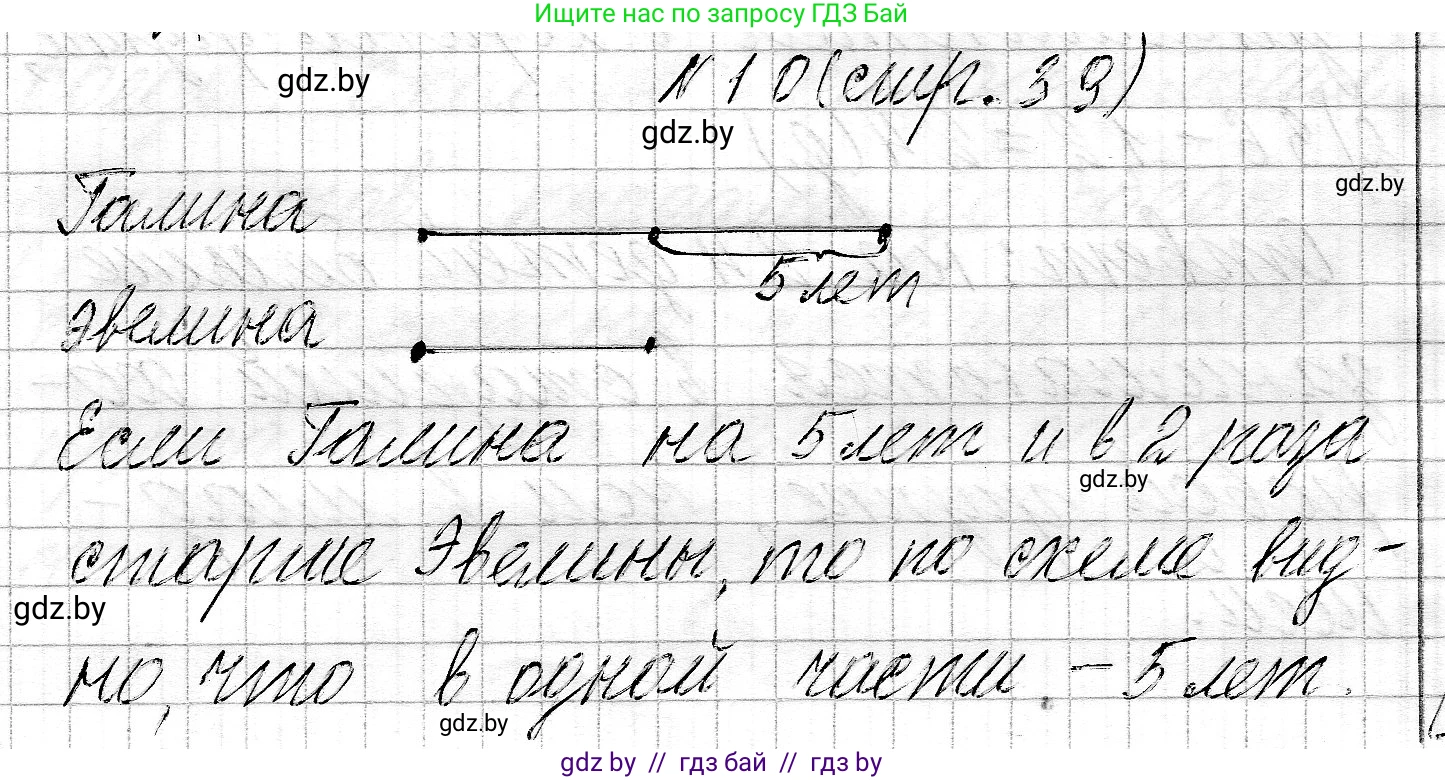 Ищите нас по запросу ГДЗ Бай
gdz.by
N 10 (стр. 39)
gdz.by
gdz.by
Галина
5 лет
Эвелина
Если Галина на 5 лет и в 2 раза
gdz.by
старше Эвелины, то по схеме вид-
gdz.by
но, что в одной части - 5 лет.
gdz.by
gdz.by // гдз бай // гдз by